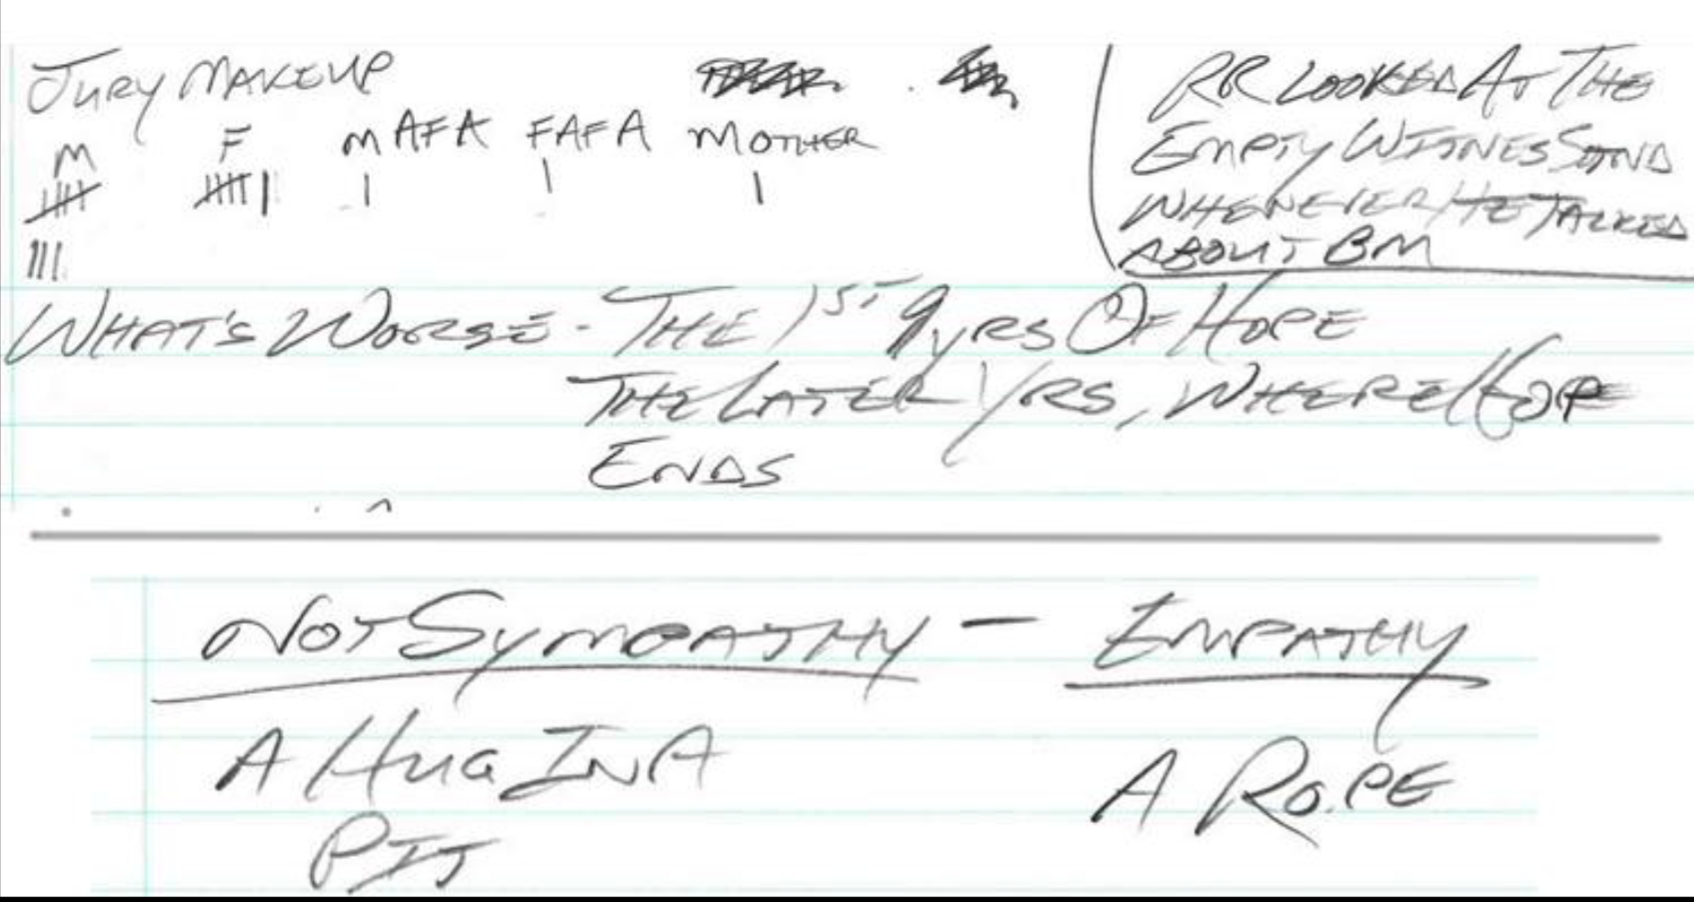 JURY MAKEUP
M F MAFA FAFA MOTHER
RR LOOKED AT THE
EMPTY WITNES STAND
WHENEVER HE TALKED
ABOUT BM
WHAT'S WORSE - THE 1ST 9yRS OF HOPE
THE LATER YRS, WHERE HOPE
ENDS
NOT SYMPATHY — EMPATHY
A HUG IN A
PIT
A ROPE